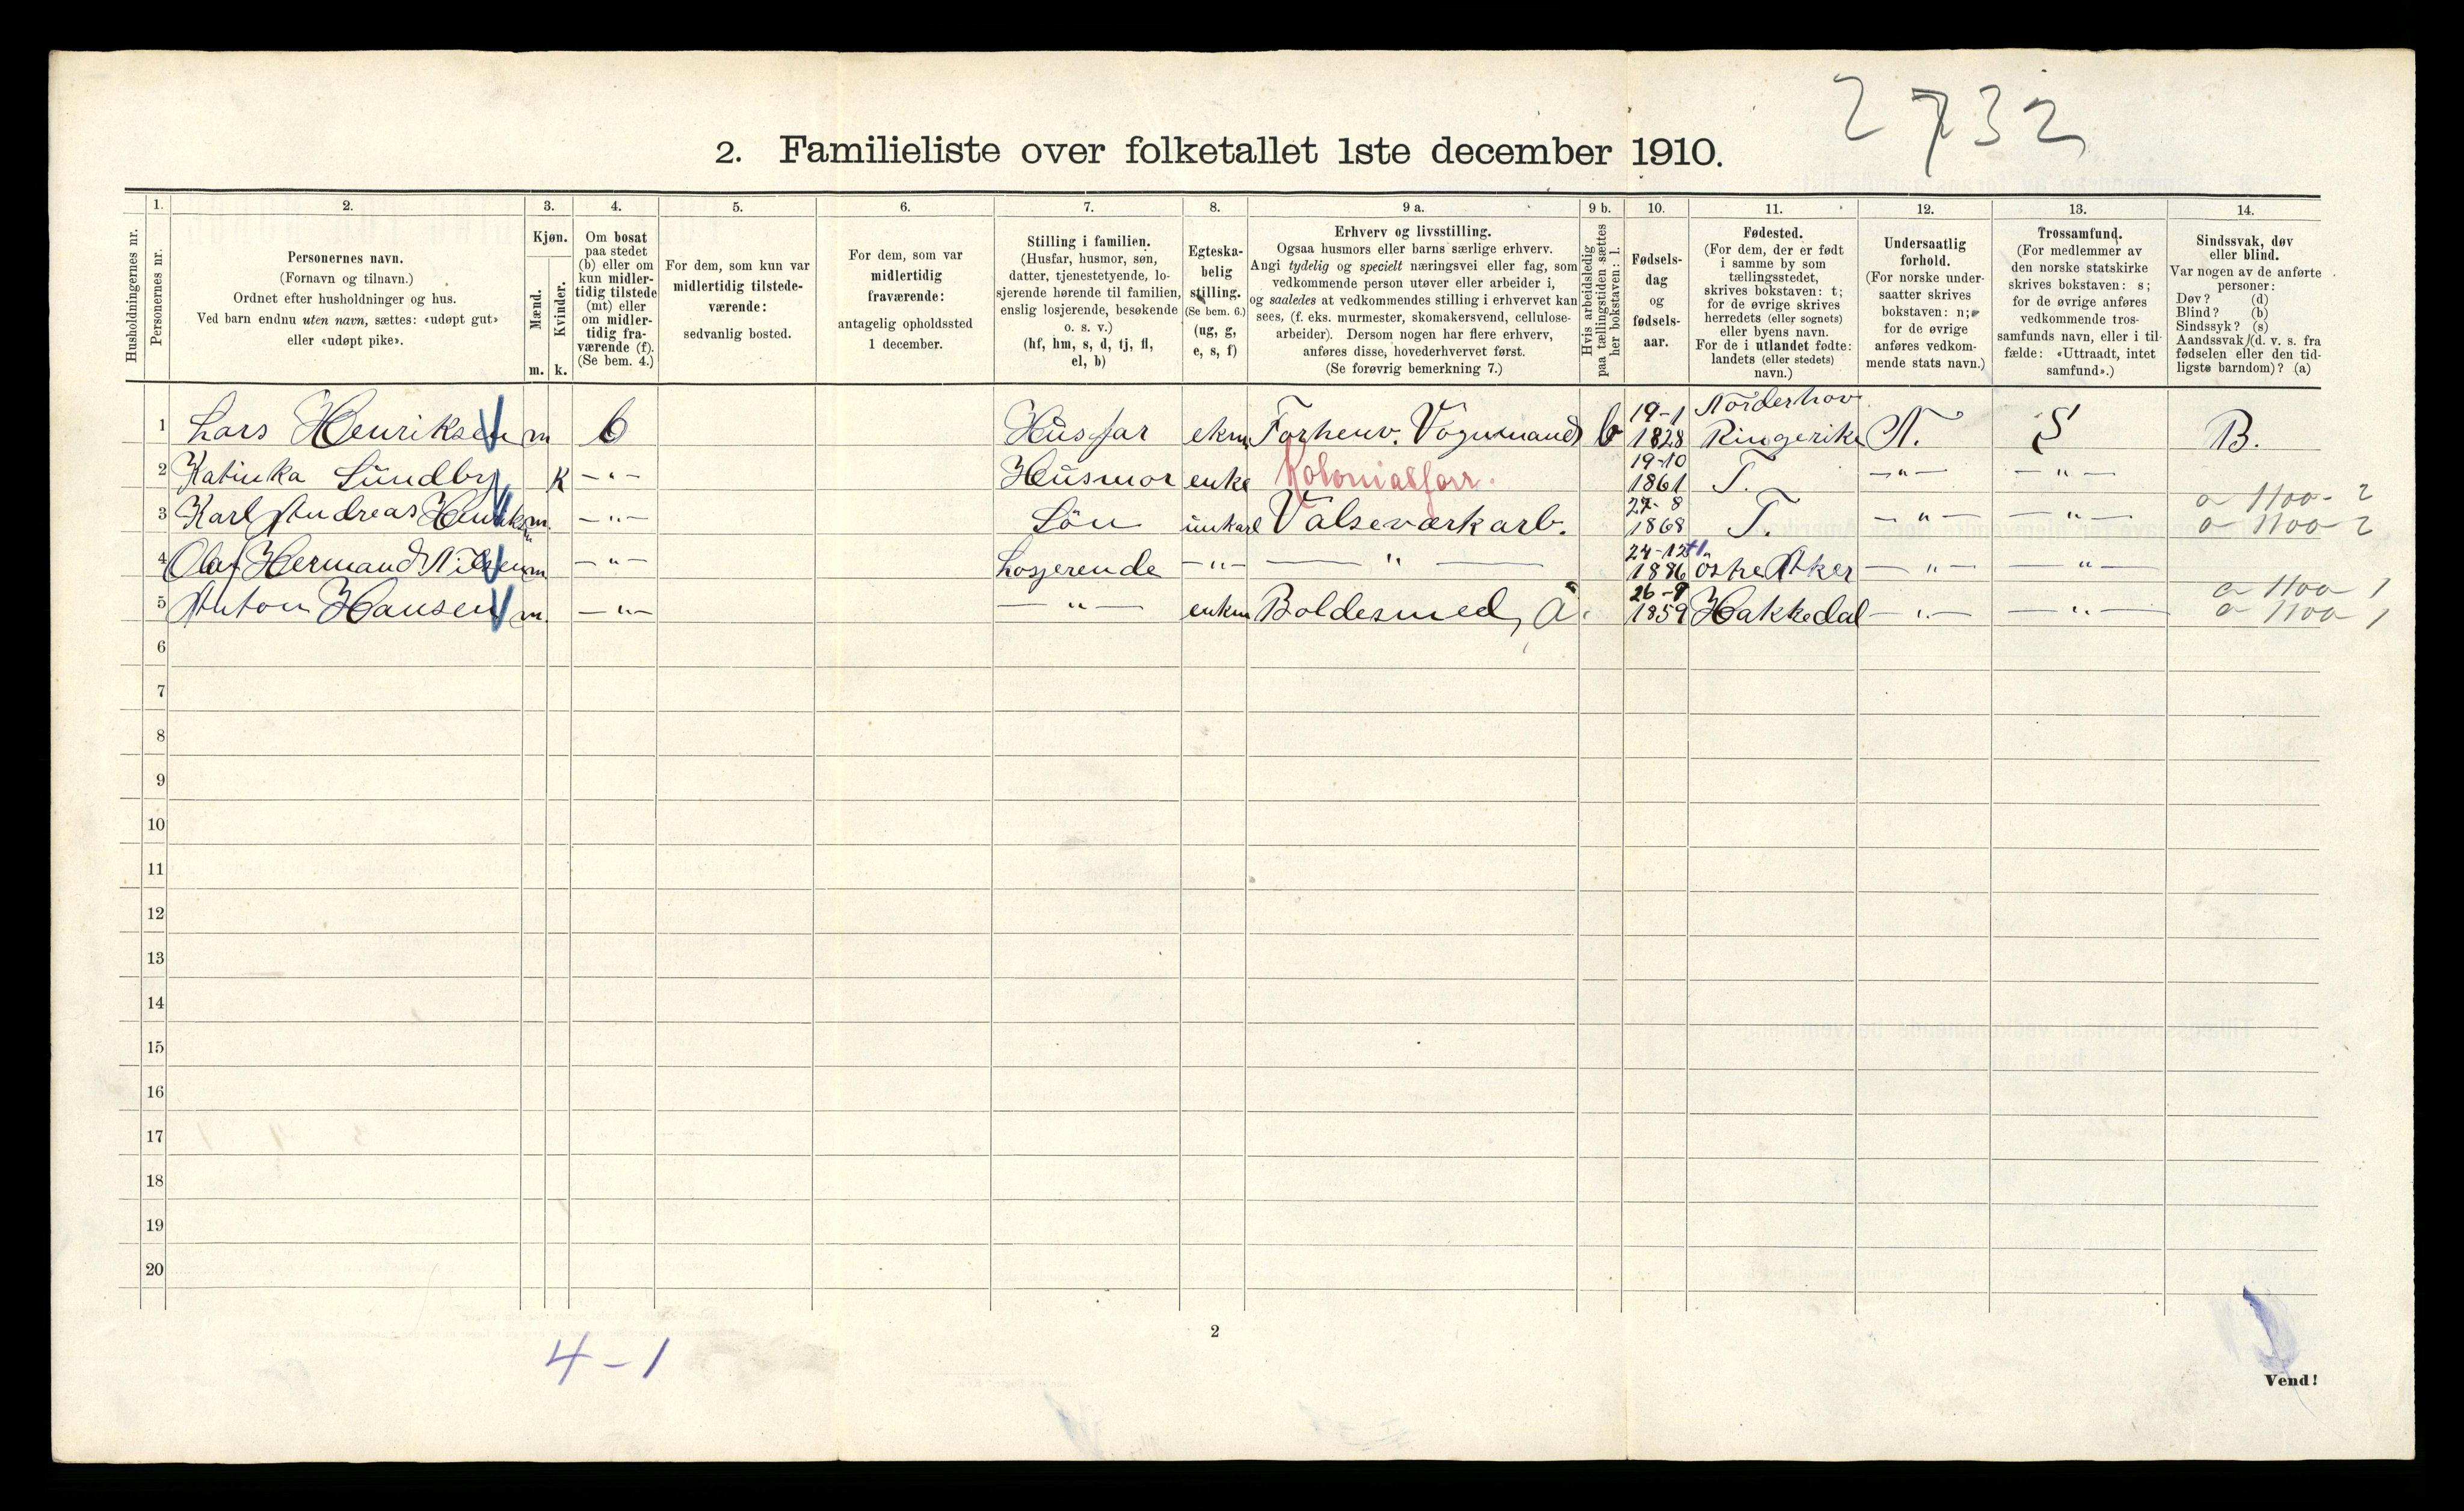 2732
2. Familieliste over folketallet 1ste december 1910.
Husholdningernes nr.
1.
Personernes nr.
2.
Personernes navn.
(Fornavn og tilnavn.)
Ordnet efter husholdninger og hus.
Ved barn endnu uten navn, sættes: «udøpt gut»
eller «udøpt pike».
3.
Kjøn.
Mænd.
Kvinder.
m. k.
4.
Om bosat
paa stedet
(b) eller om
kun midler-
tidig tilstede
(mt) eller
om midler-
tidig fra-
værende (f).
(Se bem. 4.)
5.
For dem, som kun var
midlertidig tilstede-
værende:
sedvanlig bosted.
6.
For dem, som var
midlertidig
fraværende:
antagelig opholdssted
1 december.
7.
Stilling i familien.
(Husfar, husmor, søn,
datter, tjenestetyende, lo-
sjerende hørende til familien,
enslig losjerende, besøkende
o. s. v.)
(hf, hm, s, d, tj, fl,
el, b)
8.
Egteska-
belig
stilling.
(Se bem. 6.)
(ug, g,
e, s, f)
9 a.
Erhverv og livsstilling.
Ogsaa husmors eller barns særlige erhverv.
Angi tydelig og specielt næringsvei eller fag, som
vedkommende person utøver eller arbeider i,
og saaledes at vedkommendes stilling i erhvervet kan
sees, (f. eks. murmester, skomakersvend, cellulose-
arbeider). Dersom nogen har flere erhverv,
anføres disse, hovederhvervet først.
(Se forøvrig bemerkning 7.)
9 b.
Hvis arbeidsledig
paa tællingstiden sættes
her bokstaven: l.
10.
Fødsels-
dag
og
fødsels-
aar.
11.
Fødested.
(For dem, der er født
i samme by som
tællingsstedet,
skrives bokstaven: t;
for de øvrige skrives
herredets (eller sognets)
eller byens navn.
For de i utlandet fødte:
landets (eller stedets)
navn.)
12.
Undersaatlig
forhold.
(For norske under-
saatter skrives
bokstaven: n;
for de øvrige
anføres vedkom-
mende stats navn.)
13.
Trossamfund.
(For medlemmer av
den norske statskirke
skrives bokstaven: s;
for de øvrige anføres
vedkommende tros-
samfunds navn, eller i til-
fælde: «Uttraadt, intet
samfund».)
14.
Sindssvak, døv
eller blind.
Var nogen av de anførte
personer:
Døv? (d)
Blind? (b)
Sindssyk? (s)
Aandssvak (d. v. s. fra
fødselen eller den tid-
ligste barndom)? (a)
1 Lars Henriksen m b Husfar ekm Forhenv. Vognmand b 19-1 1828 Norderhov Ringerike N. S B.
2 Katinka Lundby K —"— Husmor enke Kolonialforr. 19-10 1861 T. —"— —"—
3 Karl Andreas Henriksen m. —"— Sön unkarl Valseværkarb. 27-8 1868 T. —"— —"— a 1100-2
a 1100-2
4 Olaf Hermand Nilsen m —"— Losjerende —"— —"— 24-12 1886 östre Aker —"— —"—
5 Anton Hansen m. —"— —"— enkm Boldesmed, A. 26-9 1859 Hakkedal —"— —"— a 1100 1
a 1100 1
6
7
8
9
10
11
12
13
14
15
16
17
18
19
20
4-1
2
Vend!